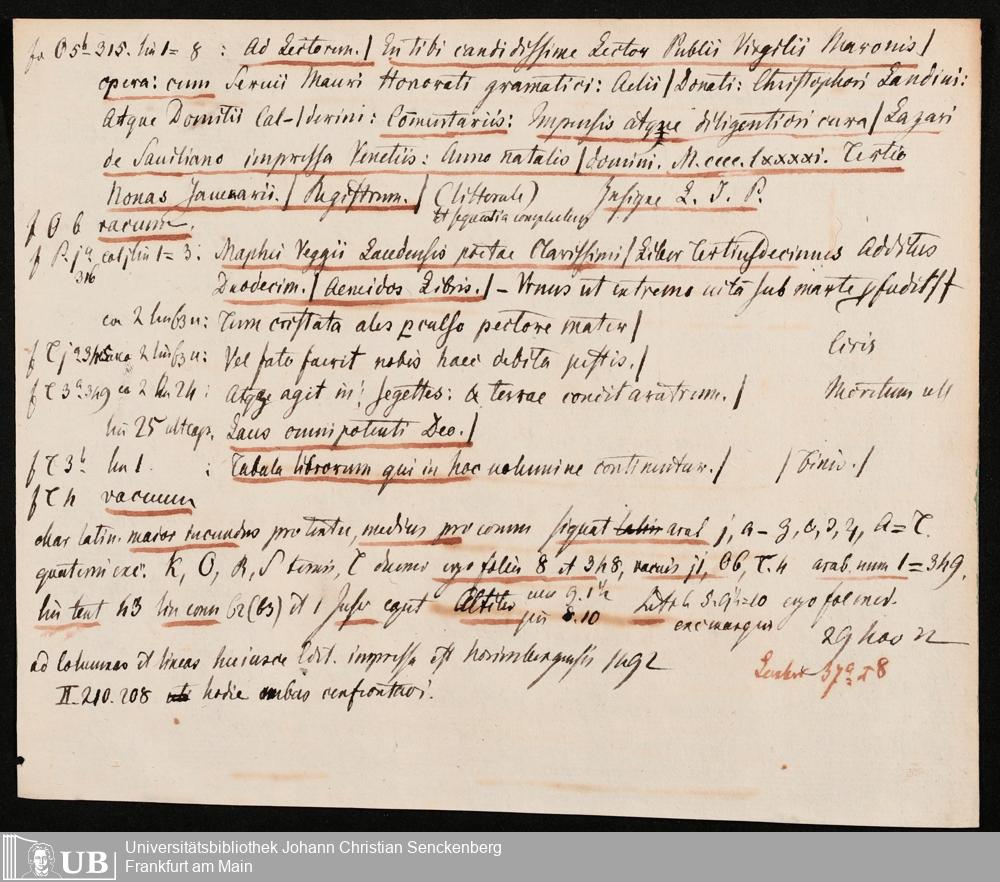 fo O 5b 315. lin 1 = 8 : Ad Lectorem. / En tibi candidissime Lector Publii Virgilii Maronis /
opera: cum Seruii Mauri Honorati gramatici: Aelii / Donati: Christophori Landini:
Atque Domitii Cal- / derini: Comentariis: Impensis atque diligentiori cura / Lazari
de Sauiliano impressa Venetiis: Anno natalis / domini. M. cccc. lxxxxi. Tertio
Nonas Januarii. / Registrum. / (litterale) Insigne L. I. P.
Et sequentia complectens
f O 6 vacuum.
f P. j a col j lin 1 = 3 : Maphei Veggii Laudensis poetae Clarissimi / Liber Tertiusdecimus Additus
316 Duodecim. / Aeneidos Libris. / - Urnus ut extremo uita sub marte pfudit
ca 2 lin 63 u: Tum cristata ales pculso pectore mater /
f T j a 345 2 lin 63 u: Vel fato fuerit nobis haec debita pestis. / Ciris
f T 3 a 349 ca 2 lin 24 : Atque agit in segettes: & terrae condit aratrum. / Moretum
lin 25 Laus omnipotenti Deo. /
f T 3 b lin 1. : Tabula librorum qui in hoc uolumine continentur. / / Finis. /
f T 4 vacuum
char latin. maior rucundus pro textu, medius pro comm signat aral j, a - z, A = T.
quaterni exc. K, O, R, S terni, T ergo foliis 8 et 348, vacuis j 1, O 6, T. 4 arab. num 1 = 349.
lin text 43 lin com 62 (63) et 1
exc margin
29 nov 22
ad columnas et lineas huiusce Edit. impressa est norimbergensis 1492
37 a 8
II. 210. 208 hodie ambas confrontavi.
Universitätsbibliothek Johann Christian Senckenberg
UB Frankfurt am Main